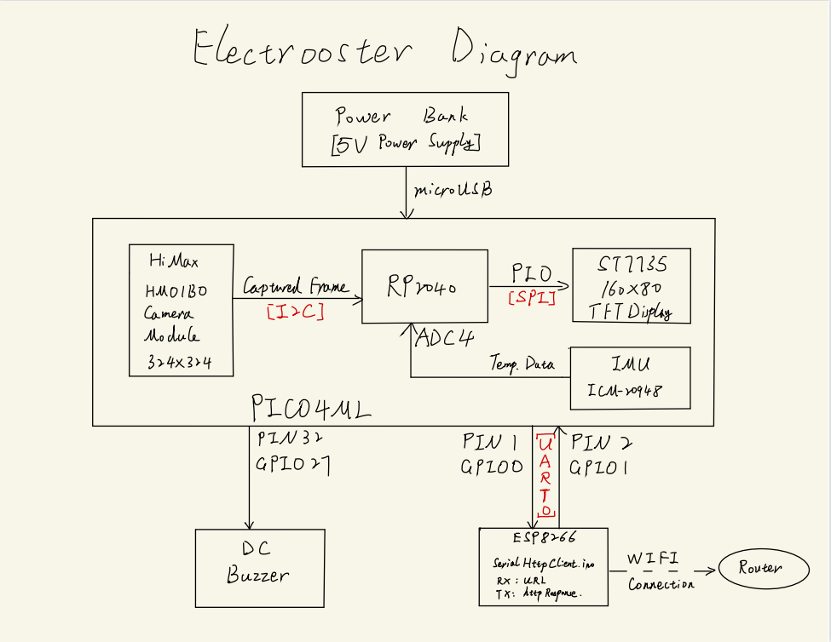 Electrooster Diagram
Power Bank
[5V Power Supply]
microUSB
HiMax
HM01B0
Camera
Module
324x324
Captured Frame
[I2C]
RP2040
PIO
[SPI]
ST7735
160x80
TFT Display
ADC4
Temp. Data
IMU
ICM-20948
PICO4ML
PIN32
GPIO27
PIN 1
GPIO0
[UART0]
PIN 2
GPIO1
DC
Buzzer
ESP8266
SerialHttpClient.ino
RX: URL
TX: http Response.
WIFI
Connection
Router